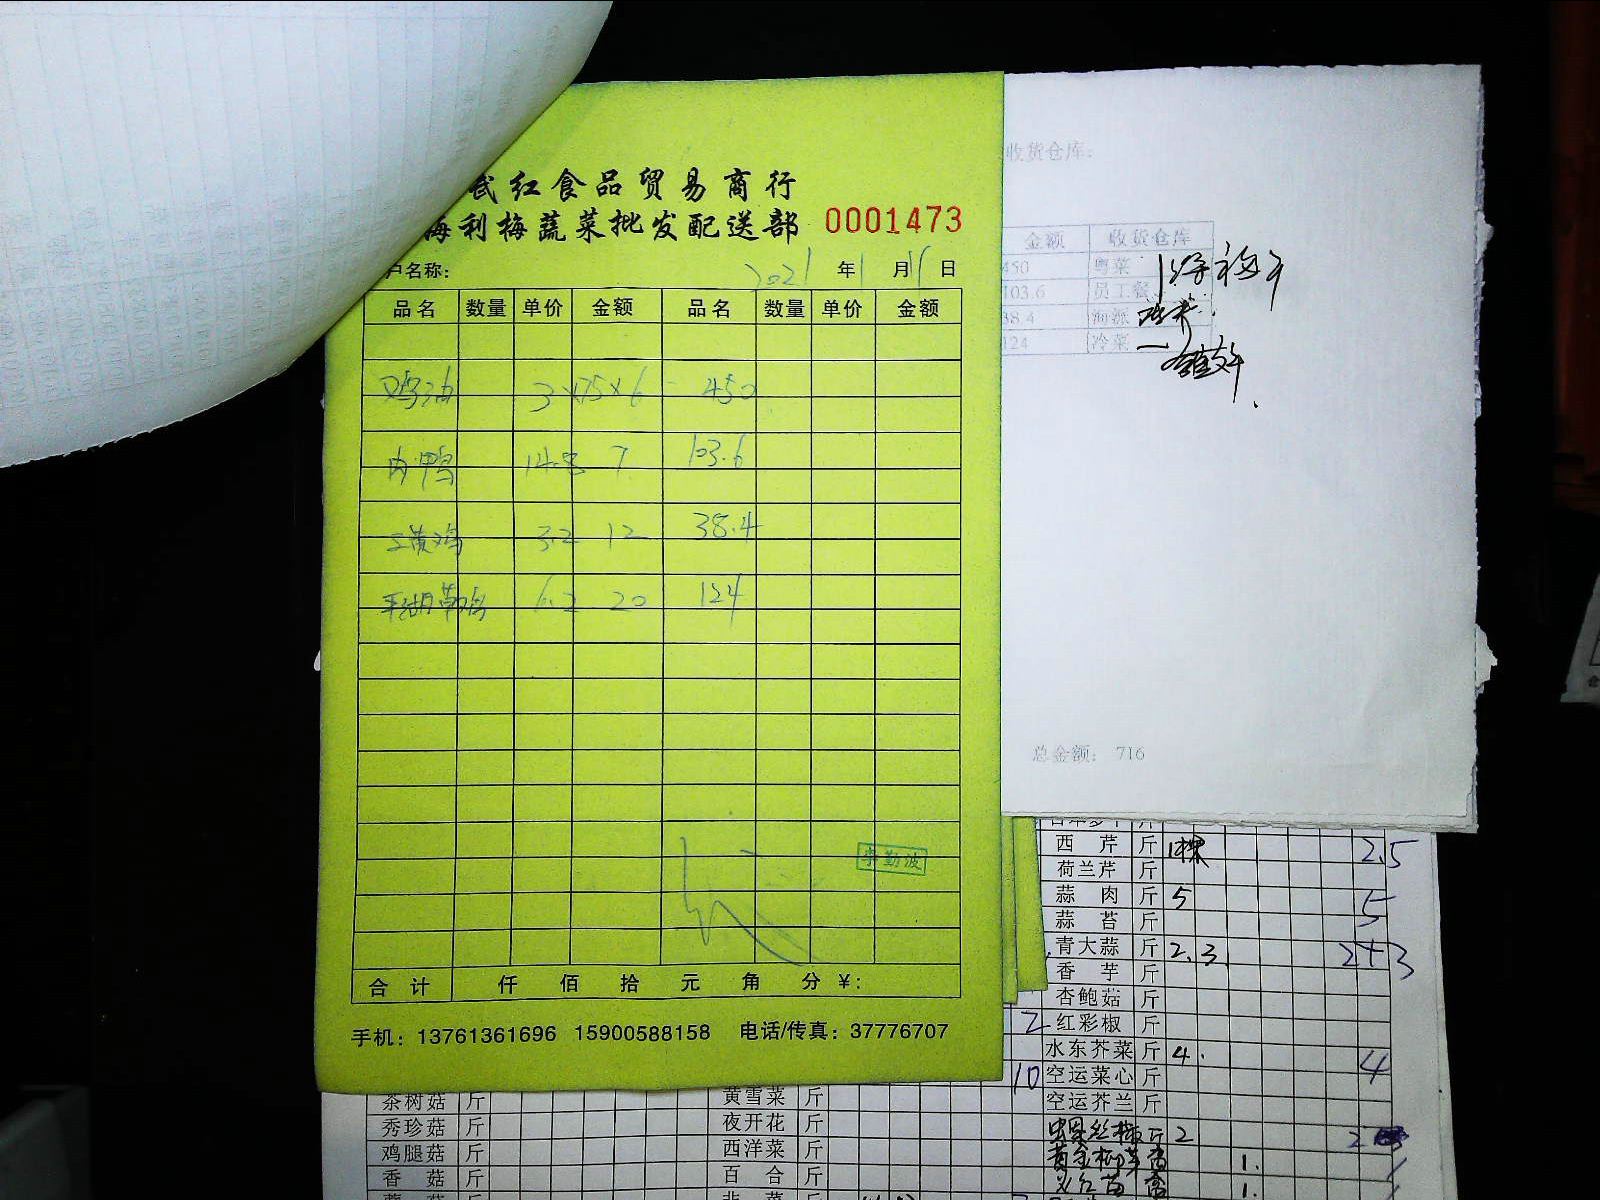 武红食品贸易商行
海利梅蔬菜批发配送部 0001473
户名称: 2021 年 1 月 11 日
品名 数量 单价 金额 品名 数量 单价 金额
鸡油 3×75×6 = 450
肉鸭 14.8 7 103.6
三黄鸡 3.2 12 38.4
平湖草鸡 6.2 20 124
李勤波
合计 仟 佰 拾 元 角 分 ¥:
手机: 13761361696 15900588158 电话/传真: 37776707
收货仓库:
金额 收货仓库
450 粤菜
103.6 员工餐
38.4 海派
124 冷菜
总金额: 716
西芹 斤 1棵 2.5
荷兰芹 斤
蒜肉 斤 5 5
蒜苔 斤
青大蒜 斤 2.3 2+3
香芋 斤
杏鲍菇 斤
2 红彩椒 斤
水东芥菜 斤 4. 4
10 空运菜心 斤
空运芥兰 斤
螺丝椒 斤 2
茶树菇 斤 黄雪菜 斤
秀珍菇 斤 夜开花 斤
鸡腿菇 斤 西洋菜 斤
香菇 斤 百合 斤